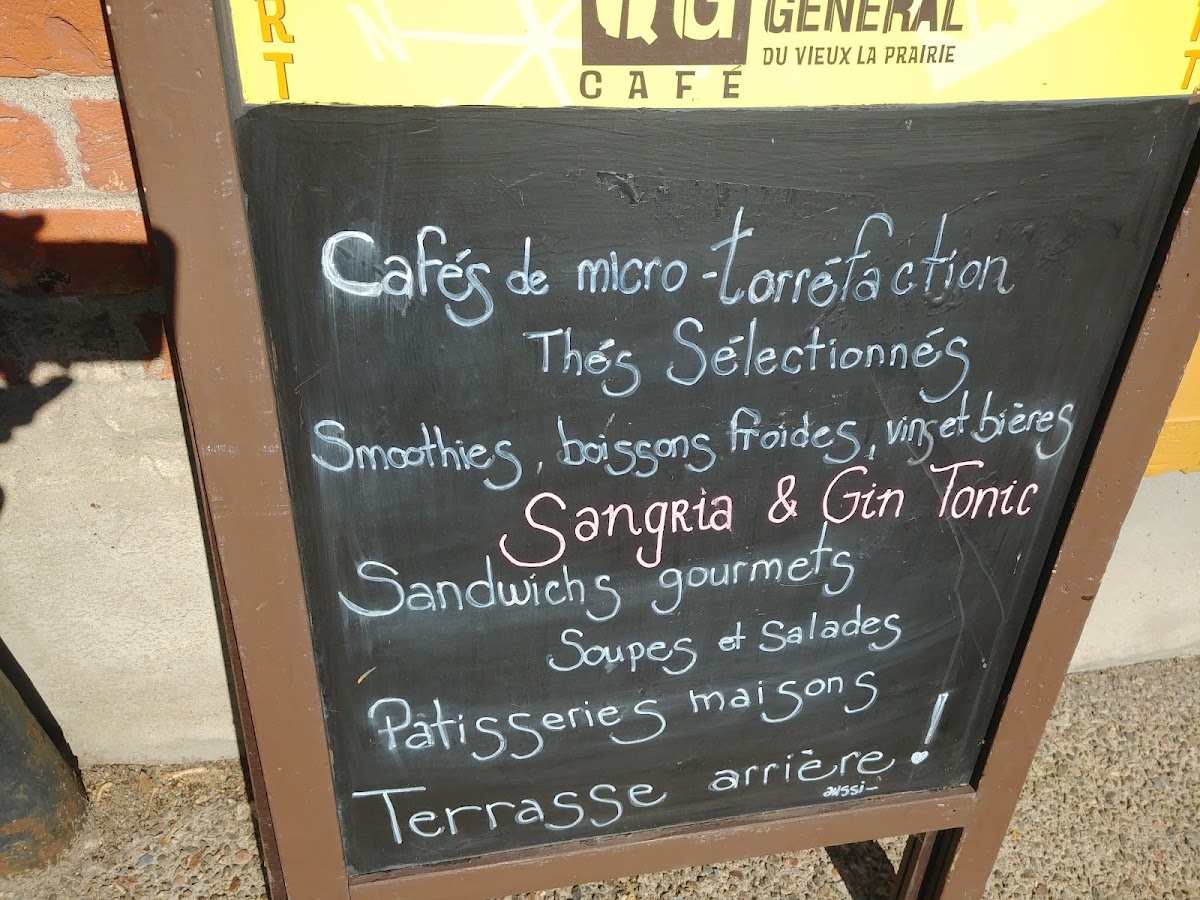 RT
QG
GÉNÉRAL
DU VIEUX LA PRAIRIE
CAFÉ
Cafés de micro-torréfaction
Thés Sélectionnés
Smoothies, boissons froides, vins et bières
Sangria & Gin Tonic
Sandwichs gourmets
Soupes et Salades
Pâtisseries maisons
Terrasse arrière!
aussi-